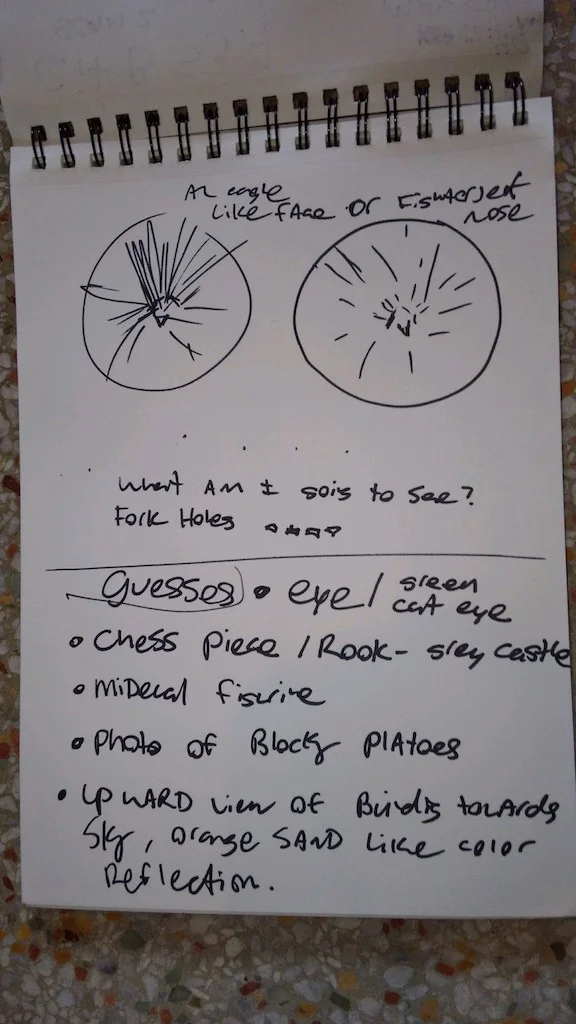 An eagle
like face or nose
What Am I to See?
Fork Holes
Guesses • eye / green
cat eye
• Chess Piece / Rook - grey castle
• figurine
• Photo of Blocky
• UPWARD view of towards
Sky, orange SAND like color
Reflection.